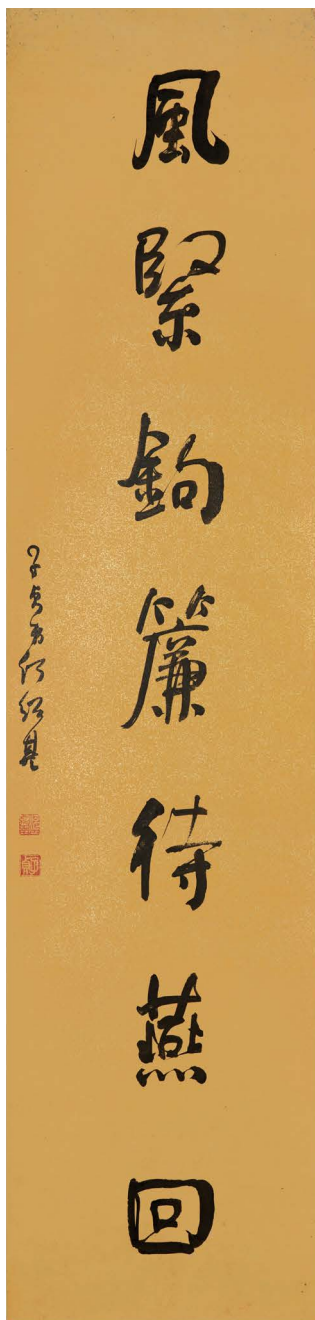 風緊鉤簾待燕回
子貞弟何紹基